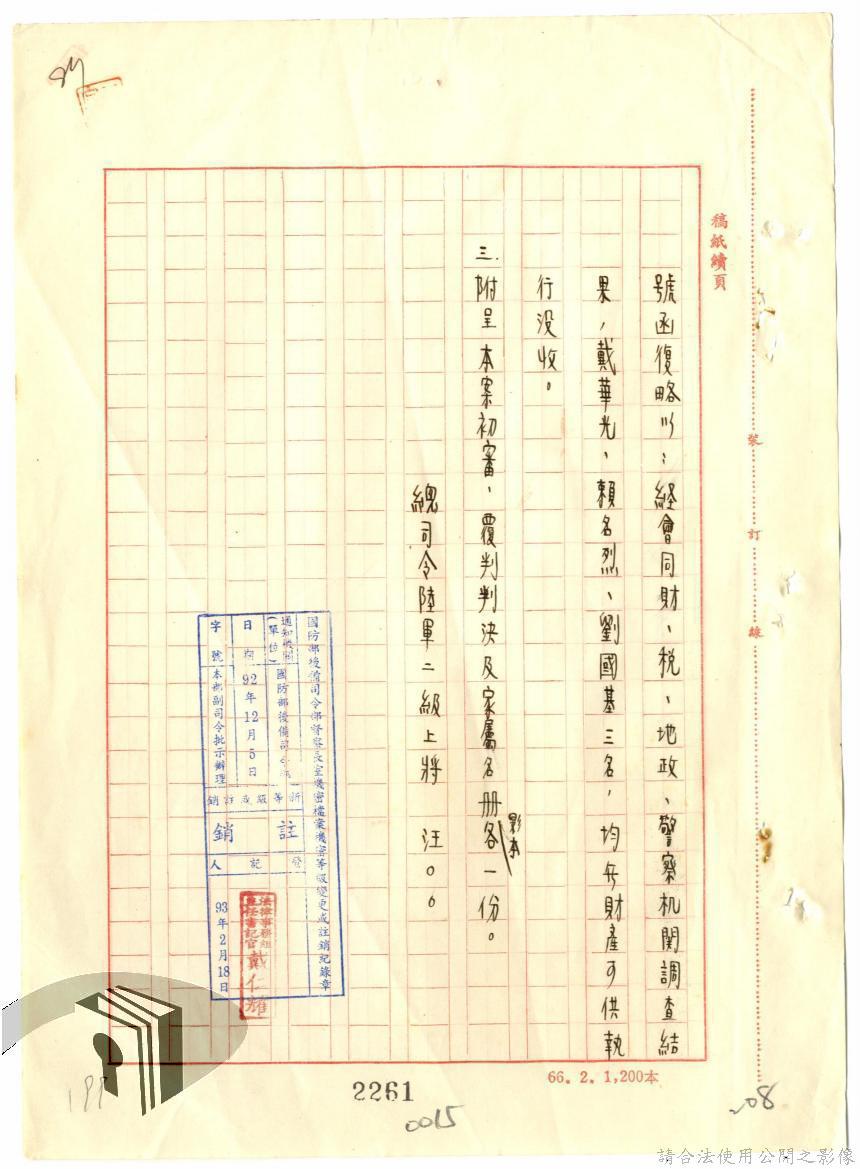 稿紙續頁
號函復略以：経會同財、稅、地政、警察机関調查結
果，戴華光、賴名烈、劉國基三名，均無財產可供執
行没收。
三.附呈本案初審、覆判判決及家屬名册各一份。
影本
總司令陸軍二級上將 汪○○
裝 訂 線
國防部後備司令部督察長室機密檔案機密等級變更或註銷紀錄章
通知機關(單位) 國防部後備司令部
日期 92年12月5日
字號 本部副司令批示辦理
新等級或註銷
註銷
登記人
法律事務組
主任書記官 戴仁耀
93年2月18日
66. 2. 1,200本
2261
0015
208
199
請合法使用公開之影像